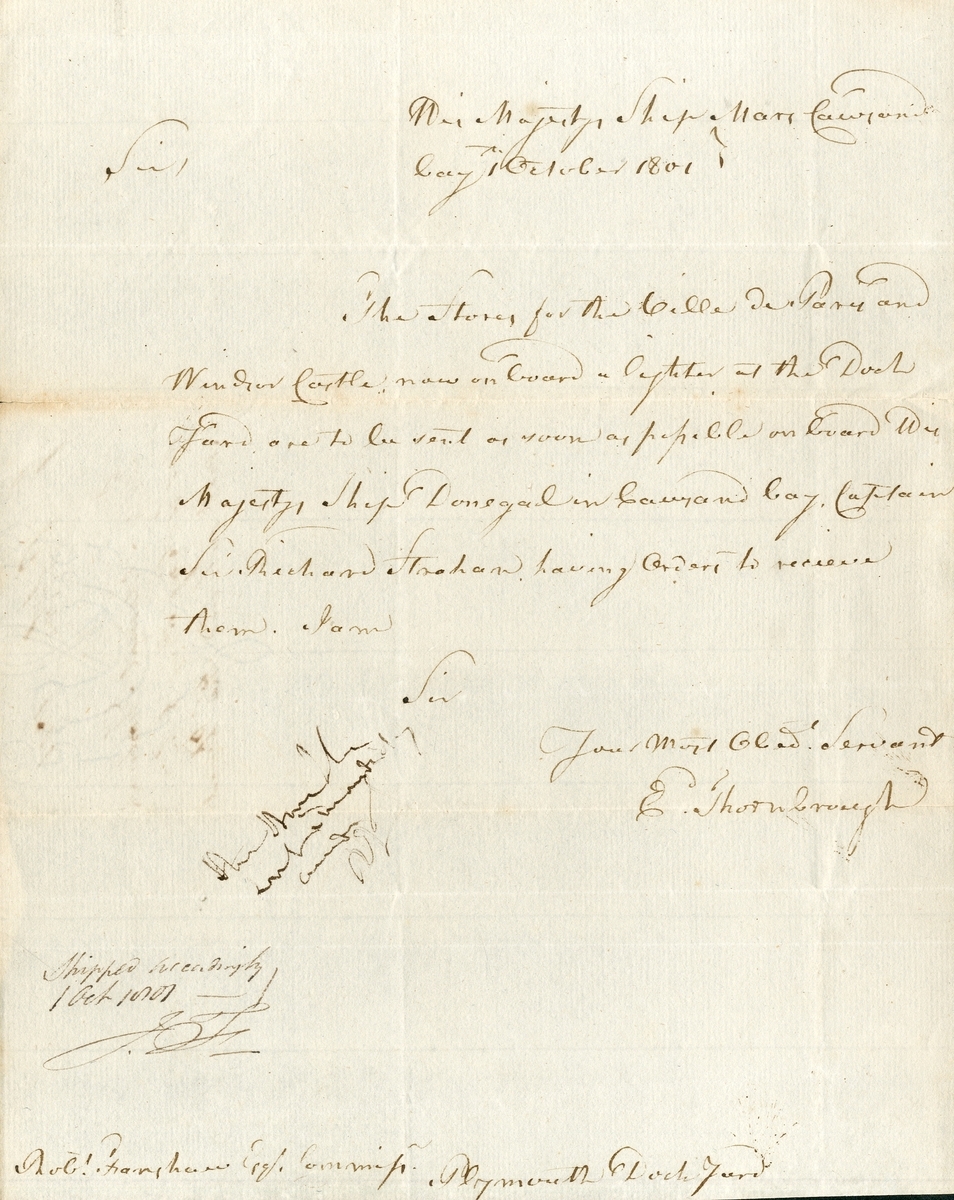 His Majestys Ship Mars Cawsand
Sir,
bay 1 October 1801
The Stores for the Ville de Paris and
Windsor Castle, now on board a lighter at the Dock
Yard are to be sent as soon as possible on board His
Majestys Ship Donegal in Cawsand bay, Captain
Sir Richard Strahan having Orders to recieve
them. I am
Sir
Your Most Obedt. Servant
Ed. Thornbrough
Shipped accordingly
1 Oct 1801
Robt. Fanshaw Esqr. Commissr. Plymouth Dock Yard